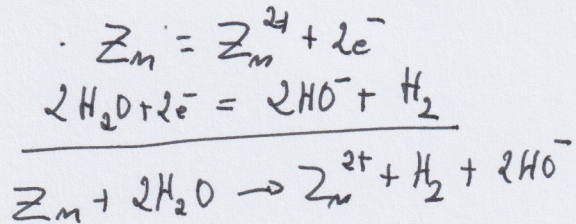 . Zn = Zn²⁺ + 2e⁻
2H₂O + 2e⁻ = 2HO⁻ + H₂
Zn + 2H₂O → Zn²⁺ + H₂ + 2HO⁻